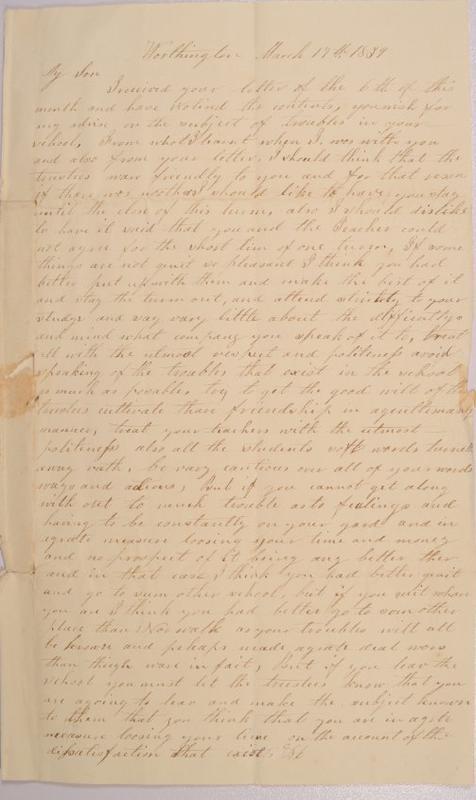 Worthington March 17th 1839
My Son
I received your letter of the 6th of this
month and have noticed the contents, you wish for
my advice on the subject of troubles in your
school, From what I learnt when I was with you
and also from your letter, I should think that the
trustees ware friendly to you and for that reson
if thare was no other I should like to have you stay
until the close of this turm, also I should dislike
to have it said that you and the Teacher could
not agree for the short time of one turm, If some
things are not quit so pleasant I think you had
better put up with them and make the best of it
and stay the turm out, and attend strictly to your
studys and say vary little about the difficultys
and mind what company you speak of it to, treat
all with the utmost respect and politeness avoid
speaking of the troubles that exist in the school
as much as posable, try to get the good will of the
trustees cultivate thare friendship in a gentlemanly
manner, treat your teachers with the utmost
politeness also all the students soft words turneth
away rath, be vary cautious over all of your words
ways and actions, But if you cannot get along
with out to much trouble as to feelings and
having to be constantly on your gard and in
a grate measure loosing your time and money
and no prospect of it being any better ther
and in that case I think you had better quit
and go to sum other school, but if you quit whare
you are I think you had better go to som other
place than Norwalk as your troubles will all
be known and perhaps made a grate deal wors
than they ware in fact, But if you leav the
school you must let the trustees know that you
are agoing to leav and make the subject known
to them that you think that you are in a grate
measure loosing your time on the account of the
dissatisfaction that exists &c